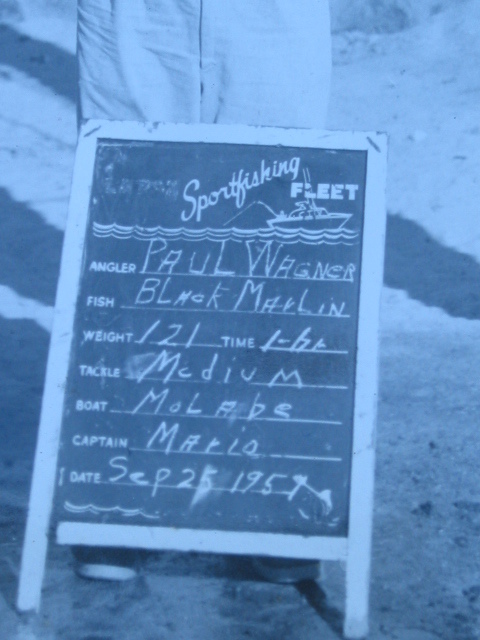 Sportfishing FLEET
ANGLER PAUL WAGNER
FISH BLACK MARLIN
WEIGHT 121 TIME 1-hr
TACKLE Medium
BOAT MoLAbe
CAPTAIN MARIO
DATE Sep 25 1957